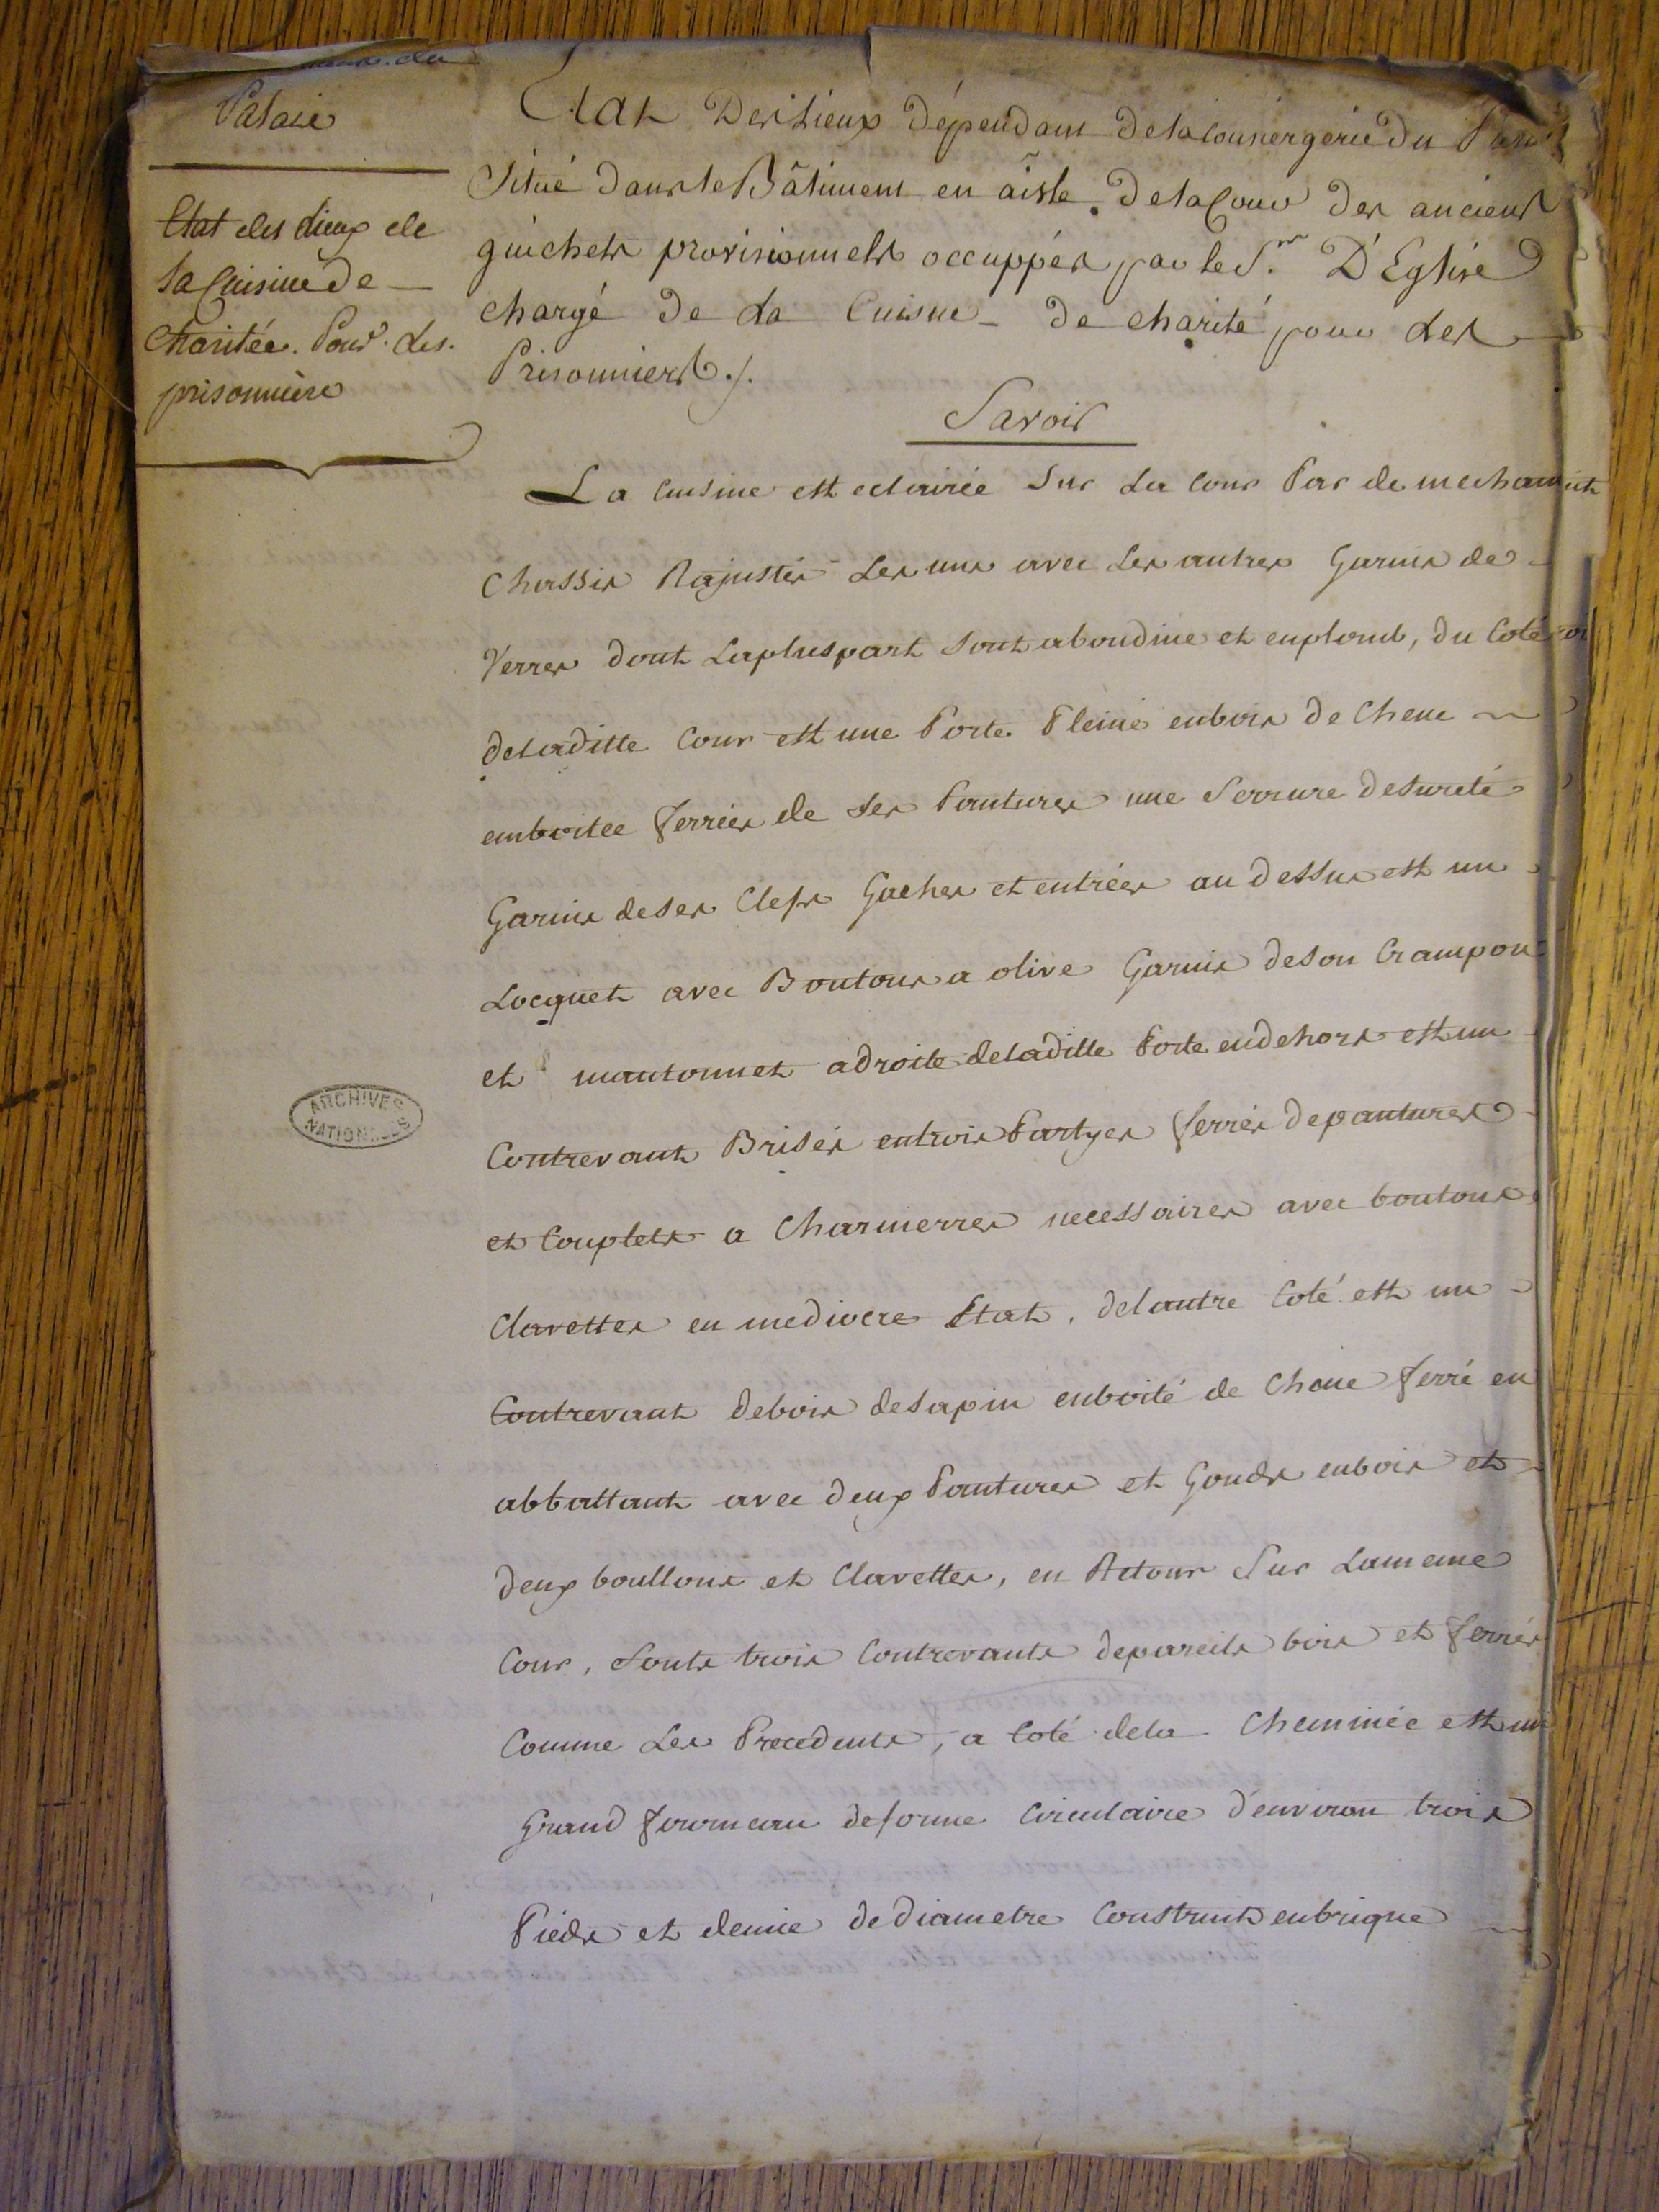 Palais
Etat des Lieux de
la Cuisine de
Charitée. Pour. des.
prisonnière
Etat Des Lieux dépendant de la Conciergerie du
Situé dans le Bâtiment en aisle de la Cour des anciens
guichets provisionnels occuppés par le Sr. D'Eglise
chargé de La Cuisine de charité pour Les
Prisonniers ./.
Savoir
La Cuisine est eclairée Sur La Cour Par de mechants
Chassis Rajustés Les uns avec Les autres Garnis de
Verres dont La pluspart Sont a boudine et en plomb, du Coté
de laditte Cour est une Porte Pleine en bois de Chene
emboitee ferrées de Ses Pantures une Serrure de Sureté
Garnis de Ses Clefs Gaches et entrées au dessus est un
Locquet avec Boutons a olive Garnis de Son Crampon
et mantonnet a droite de laditte Porte en dehors est un
Contrevant Brisés en trois Partyes ferrés de pantures
et Couplets a Charnierres necessaires avec boutons
Clavettes en mediocre Etat. de l'autre Coté est un
Contrevant de bois de Sapin enboité de Chene ferré en
abbattant avec deux Pantures et Gonds en bois et
deux boullons et Clavettes, en Retour Sur La meme
Cour, Sonts trois Contrevants de pareils bois et ferrés
Comme Les Precedents, a Coté de la Cheminée est un
Grand fourneau de forme Circulaire d'environ trois
Pieds et demie de Diametre Construits en brique
ARCHIVES
NATIONALES